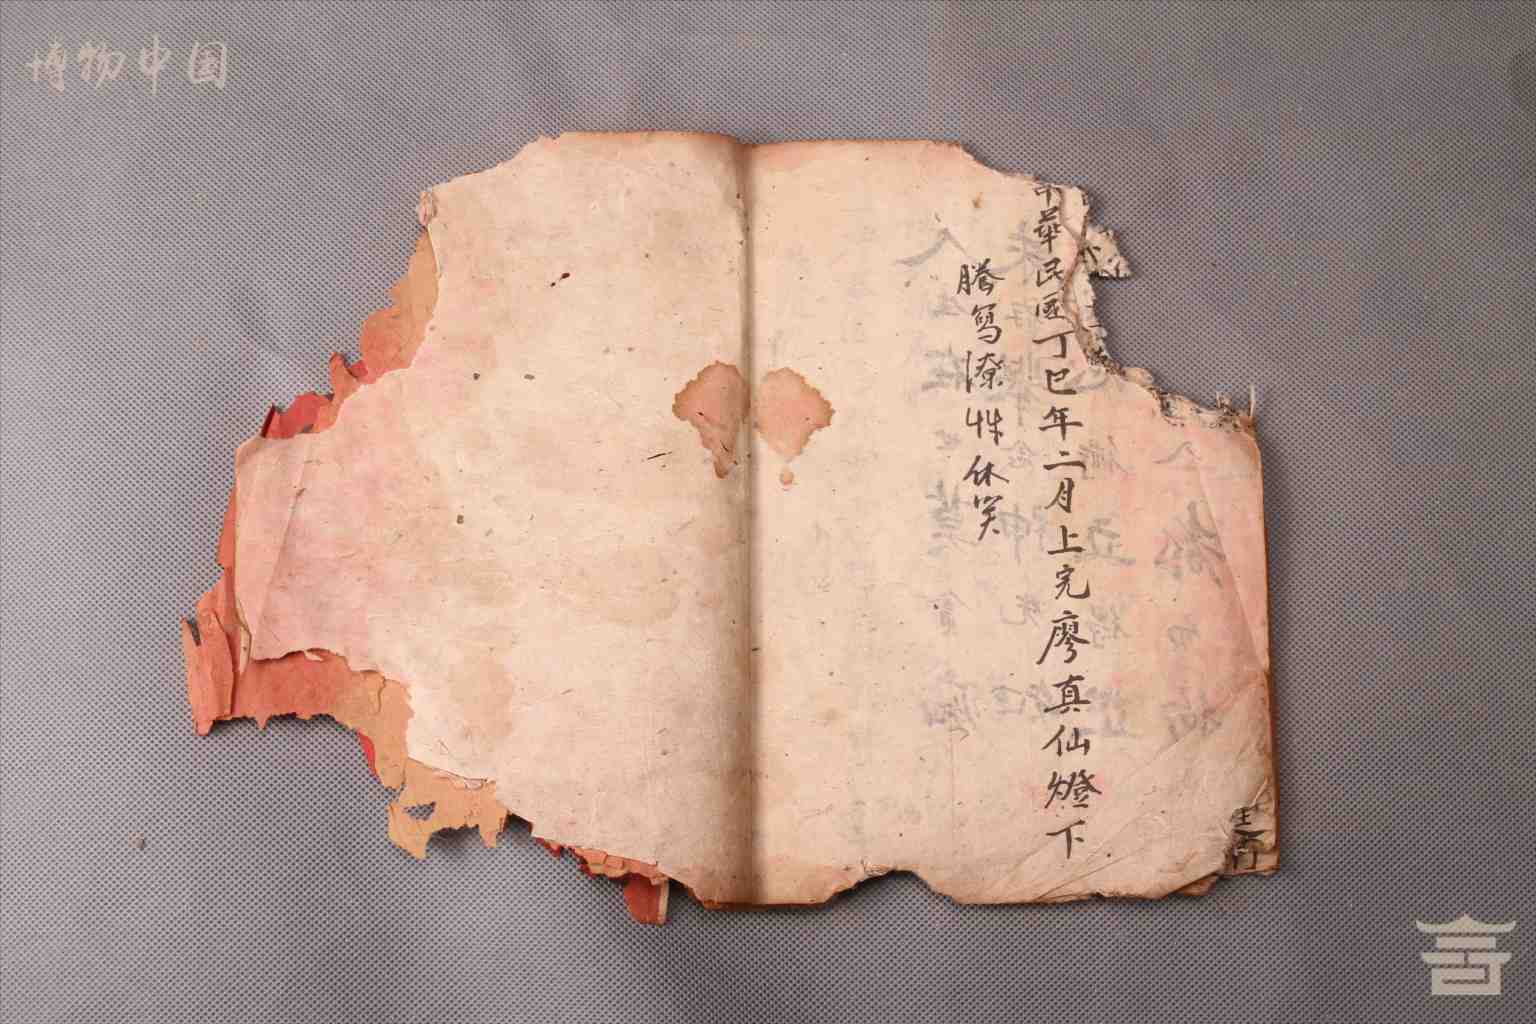 博物中国
中華民國丁巳年二月上完廖真仙燈下
騰寫潦艸休笑